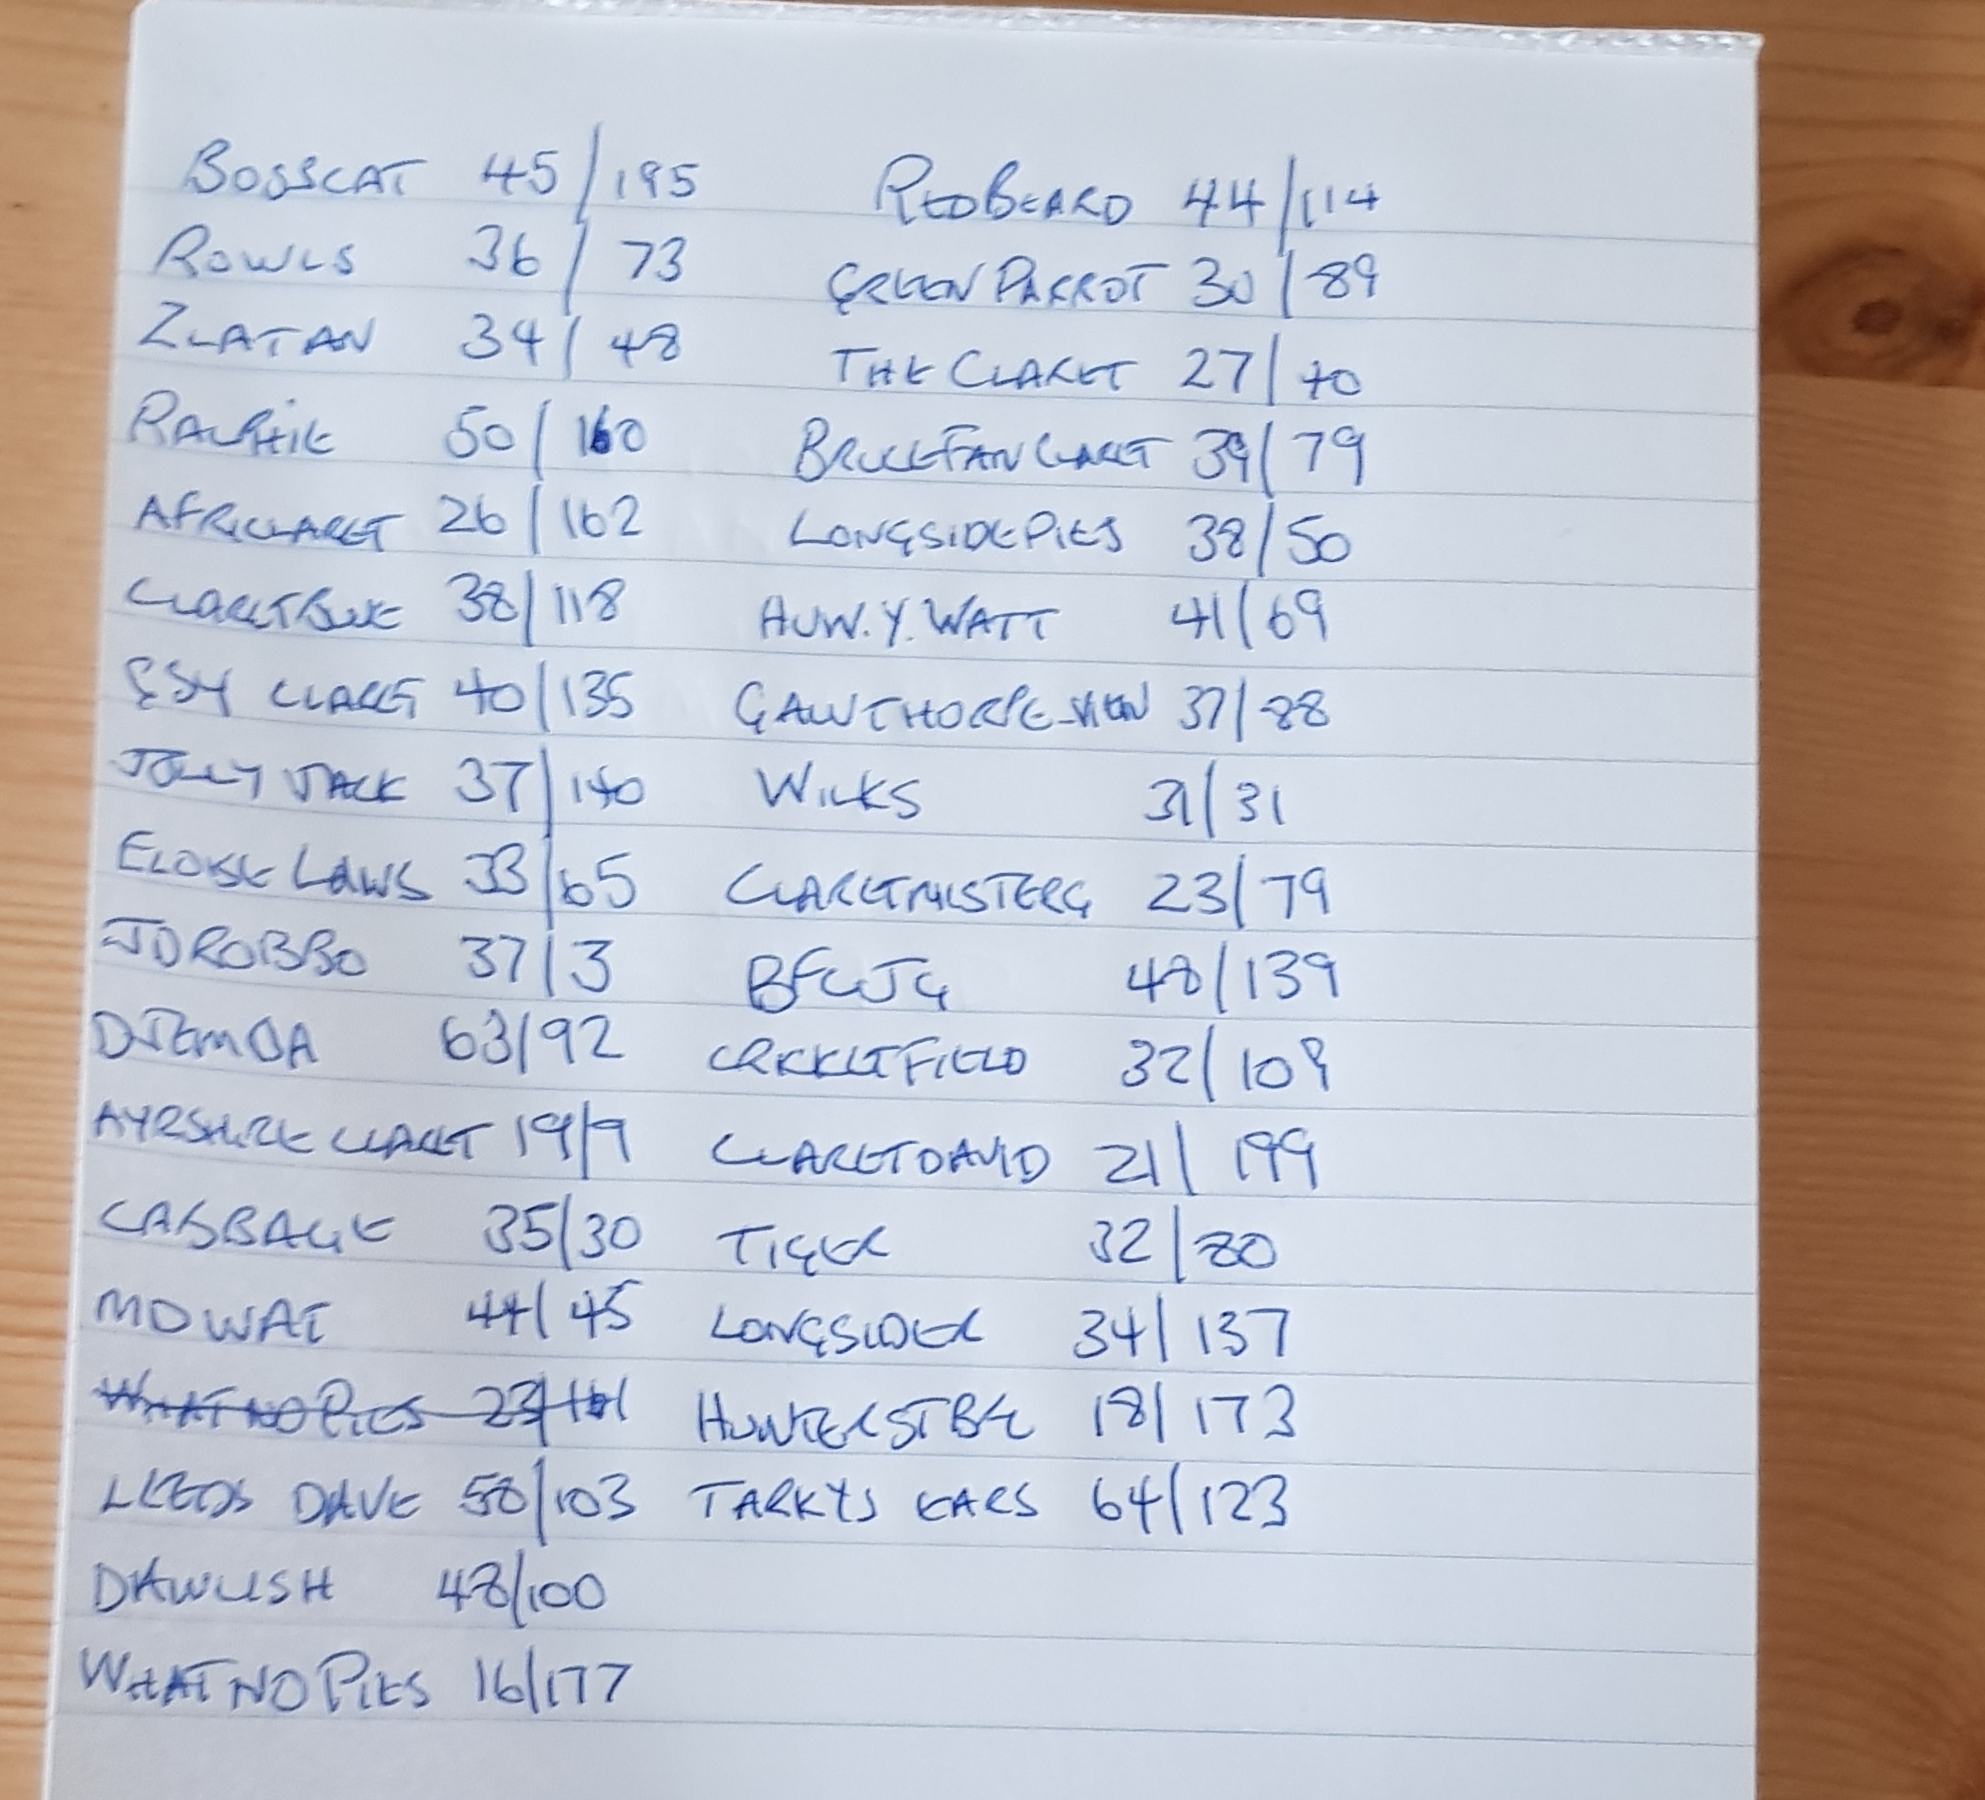 BOSSCAT 45/195
ROWLS 36/73
ZLATAN 34/48
RALPHIE 50/160
AFRICLARET 26/162
CLARETBLUE 38/118
GSY CLARET 40/135
JOLLY JACK 37/140
ELOISE LAWS 33/65
JDROBBO 37/3
DJEMBA 63/92
AYRSHIRE CLARET 19/9
CABBAGE 35/30
MOWAT 44/45
WHATNOPIES
LEEDS DAVE 58/103
DAWLISH 48/100
WHATNOPIES 16/177
REDBEARD 44/114
GREEN PARROT 30/89
THE CLARET 27/70
BRUCEFANCLARET 39/79
LONGSIDEPIES 38/50
HUW.Y.WATT 41/69
GAWTHORPE_VIEW 37/88
WILKS 31/31
CLARETMISTERG 23/79
BFCJG 48/139
CRICKETFIELD 32/109
CLARETDAVID 21/199
TIGER 32/80
LONGSIDER 34/137
HUNTERSTBFC 18/173
TARKYS EARS 64/123